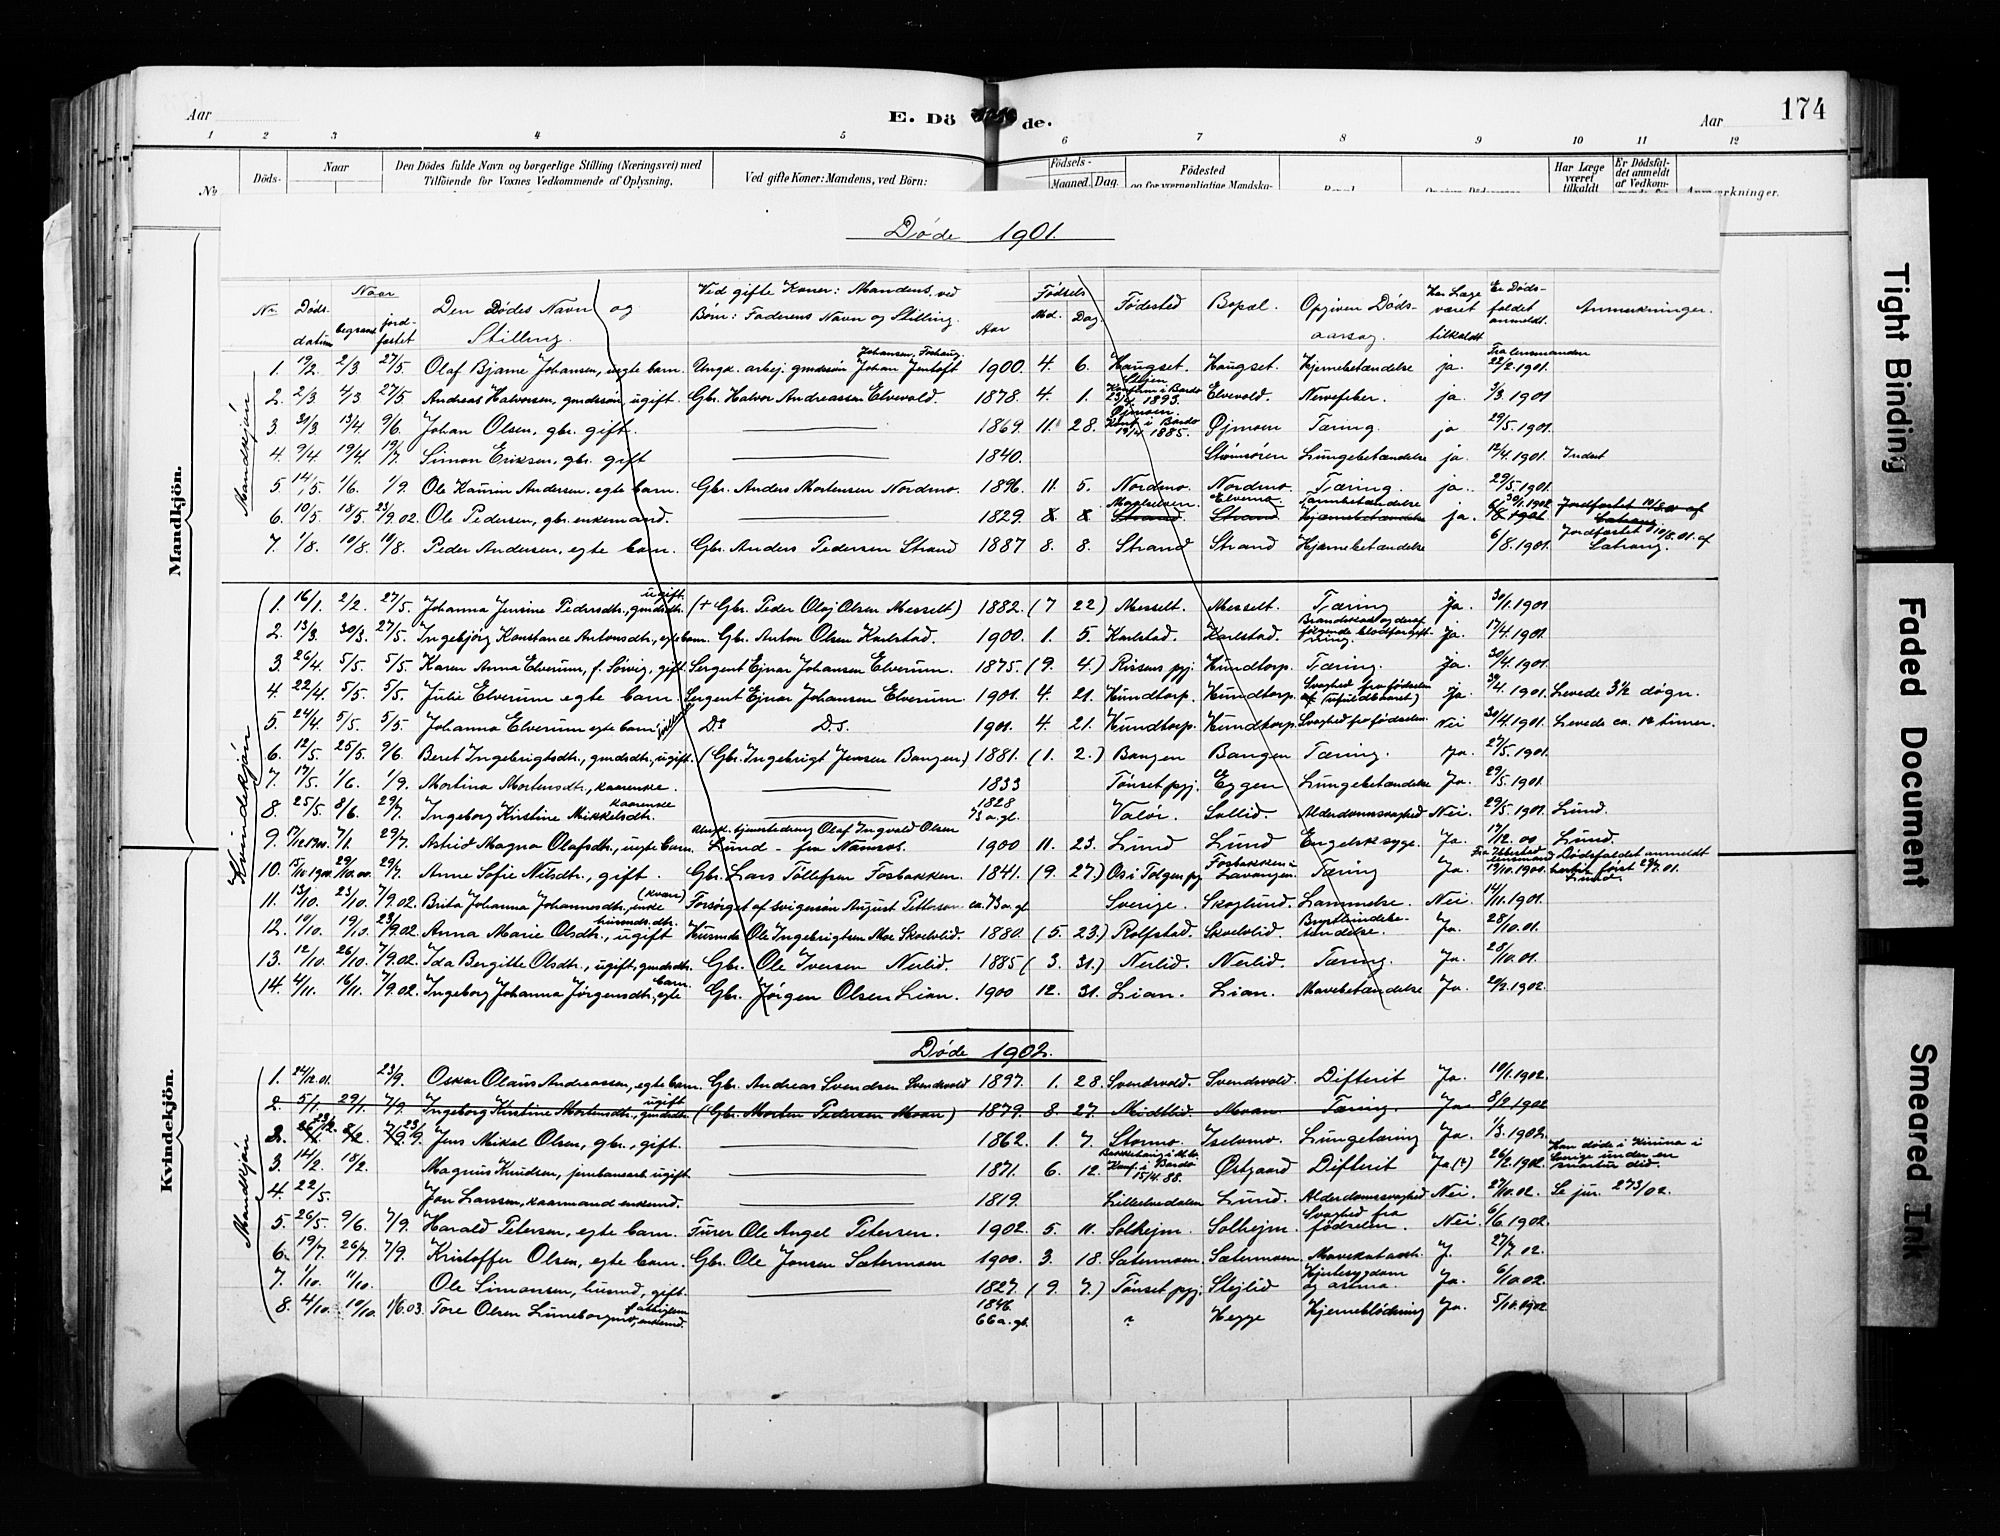 Aar
E. Dö de.
Aar
174
1 2 3 4 5 6 7 8 9 10 11 12
No Döds- Naar Den Dödes fulde Navn og borgerlige Stilling (Næringsvei) med Tilföiende for Voxnes Vedkommende af Oplysning. Ved gifte Koner: Mandens, ved Börn: Födsels- Maaned Dag. Födested Har Læge været tilkaldt Er Dödsfaldet anmeldt Anmærkninger.
Døde 1901.
Nr. Døds datum Naar begravet jordfæstet Den Dødes Navn og Stilling. Ved gifte Koner: Mandens, ved Børn: Faderens Navn og Stilling. Aar Fødsels Md. Dag. Fødested Bopæl. Opgiven Dødsaarsag. Har Læge været tilkaldt Er Dødsfaldet anmeldt. Anmerkninger.
Mandkjøn
1. 19/2. 2/3 27/5 Olaf Bjarne Johansen, uegte barn. Ungk. arbej. gmdssøn Johan Jentoft Johansen, Foshaug. 1900. 4. 6. Haugset. Haugset. Hjernebetændelse ja. Fra lensmanden 22/2.1901.
2. 2/3 4/3 27/5 Andreas Halvorsen, gmdssøn, ugift. Gbr. Halvor Andreassen Elvevold. 1878. 4. 1. Elvevold. Nervefeber. ja. 3/3.1901
3. 31/3. 13/4. 9/6. Johan Olsen, gbr. gift. 1869. 11. 28. Øjmoen. Konf. i Bardo 19/4 1885. Øjmoen Tæring. ja 29/5.1901.
4. 9/4. 19/4. 19/7. Simon Eriksen, gbr. gift 1840. Strømsören Lungebetændelse ja. 12/4.1901. Indset
5. 14/5. 1/6. 1/9. Ole Kaurin Andersen, egte barn. Gbr. Anders Mortensen Nordmo. 1896. 11. 5. Nordmo. Nordmo. Tæring. ja. 29/5.1901.
6. 10/5. 18/5. 23/9.02. Ole Pedersen, gbr. enkemand. 1829. Strand. Elvemo Strand Tarmbetændelse Hjernebetændelse ja. 30/1.1902 Jordfæstet 10/8.01 af Catrang.
7. 1/8. 10/8. 10/8. Peder Andersen, egte barn. Gbr. Anders Pedersen Strand 1887 8. 8. Strand Strand Hjernebetændelse 6/8.1901. Jordfæstet 10/8.01. af Catrang.
Kvindekjøn
1. 16/1. 2/2. 27/5. Johanna Jensine Pedersdtr., gmdsdtr. ugift. (+ Gbr. Peder Olaj Olsen Messelt) 1882. (7 22) Messelt. Messelt. Tæring Ja. 30/1.1901
2. 13/3. 30/3. 27/5. Ingebjørg Konstance Antonsdtr., egte barn. Gbr. Anton Olsen Karlstad. 1900. 1. 5. Karlstad. Karlstad. Brandskad og deraf følgende blodforgiftning. Ja. 17/4.1901.
3. 26/4. 5/5. 5/5. Karen Anna Elverum, f. Solvig, gift. Sergent Ejnar Johansen Elverum. 1875. (9. 4.) Rissens pgj. Hundtorp. Tæring. Ja. 30/4.1901
4. 22/4. 5/5. 5/5. Julie Elverum egte barn. Sergent Ejnar Johansen Elverum 1901. 4. 21. Hundtorp. Hundtorp. Svaghed fra fødselen Ja. 30/4.1901. Levede 3½ døgn.
5. 24/4. 5/5. 5/5. Johanna Elverum egte barn D.s. D.s. 1901. 4. 21. Hundtorp. Hundtorp. Svaghed fra fødselen. Nei 30/4.1901. Levede ca. 12 timer.
6. 12/5. 25/5. 9/6. Beret Ingebrigtsdtr., gmdsdtr., ugift. (Gbr. Ingebrigt Jensen Bangen) 1881. (1. 2.) Bangen Bangen Tæring. Ja. 27/5.1901.
7. 17/5. 1/6. 1/9. Mortina Mortensdtr., kaarenke. 1833 Tønset pgj. Eggen Lungebetændelse Ja. 29/5.1901.
8. 25/5. 8/6. 29/7. Ingeborg Kirstine Mikkelsdtr. kaarenke 1828 73 a. gl. Valøi. Sollid. Alderdomssvaghed Nei. 29/5.1901. Lund.
9. 17/12.1900. 7/1. 29/7. Astrid Magna Olafsdtr., uegte barn. tjenestedreng Olaf Ingvald Olsen Lund - fra Namsos. 1900 11. 23. Lund Lund Engelsk syge. Ja. 17/12.00 Lund.
10. 15/10 1900. 29/10.00. 29/7. Anne Sofie Nilsdtr., gift. Gbr. Lars Tollefsen Fosbakken. 1841. (9. 27.) Os i Tolgen pgj. Fosbakken i Lavangen Tæring Ja. Fra Ibbestad lensmand 19/10.1900. Dødsfaldet anmeldt hertil først 29/7.01. Lund.
11. 13/10. 23/10. 7/9.02. Brita Johanna Johannesdtr., enke (kvæn) Forsørget af svigersøn August Petterson ca. 73 a. gl. Sverige. Skoglund. Lammelse. Nei. 14/11.1901.
12. 10/10. 19/10. 23/9.02. Anna Marie Olsdtr., husmds.dtr. ugift Husmds Ole Ingebrigtsen Moe Skoelvlid. 1880. (5. 23.) Rolfstad. Skoelvlid. Brysthindebetændelse. Ja. 28/10.01.
13. 12/10. 26/10. 7/9.02. Ida Bergitte Olsdtr., ugift, gmdsdtr. Gbr. Ole Iversen Nerlid. 1885 (3. 31.) Nerlid. Nerlid. Tæring. Ja. 28/10.01.
14. 4/11. 16/11. 7/9.02. Ingeborg Johanna Jørgensdtr., egte barn. Gbr. Jørgen Olsen Lian. 1900 12. 31. Lian. Lian. Mavebetændelse Ja. 20/2.1902.
Døde 1902.
Mandkjøn
1. 24/12.01. 23/9. Oskar Olaus Andreassen, egte barn. Gbr. Andreas Svendsen Svendsvold 1897. 1. 28. Svendsvold. Svendsvold. Difterit Ja. 10/1.1902.
2. 5/1. 29/1. 7/9. Ingeborg Kirstine Mortensdtr., gmdsdtr. ugift (Gbr. Morten Pedersen Moan) 1879. 8. 27. Midtlid. Moan Tæring. Ja 8/2.1902
2. Jens Mikal Olsen, gbr., gift. 1862. 1. 7. Stormo. Iselvmo. Lungetæring Ja. 1/3.1902.
3. 14/2. 18/2. Magnus Knudsen, jernbanearb. ugift 1871. 6. 12. Konf. i Bardo 15/4.88. Østgaard Difterit Ja(?) 26/2.1902. Han døde i Kiruna i Sverige under en
4. 22/5. Jon Larssen, kaarmand enkemd. 1819. Lilleelvedalen Lund. Alderdomssvaghed Nei. 27/10.02. Se jur. 273/02.
5. 26/5. 9/6. 7/9. Harald Petersen, egte barn. Furer Ole Angel Petersen. 1902. 5. 11. Solhejm. Solhejm. Svaghed fra fødselen. Nei. 6/6.1902.
6. 19/7. 26/7. 7/9. Kristoffer Olsen, egte barn. Gbr. Ole Jonsen Sætermoen 1900. 3. 18. Sætermoen. Sætermoen. Mavekatarrh. J. 27/7.02.
7. 1/10. 11/10. Ole Simonsen, husmd, gift. 1827. (9. 7.) Tønset pgj. Stejlid Hjertesygdom og astma. Ja. 6/10.02.
8. 4/10. 19/10. 1/6.03. Tore Olsen Lüneborg enkemd. 1846. 66 a. gl. ? Hegge Hjerneblødning Ja. 5/10.1902
Mandkjön.
Kvindekjön.
Tight Binding
Faded Document
Smeared Ink